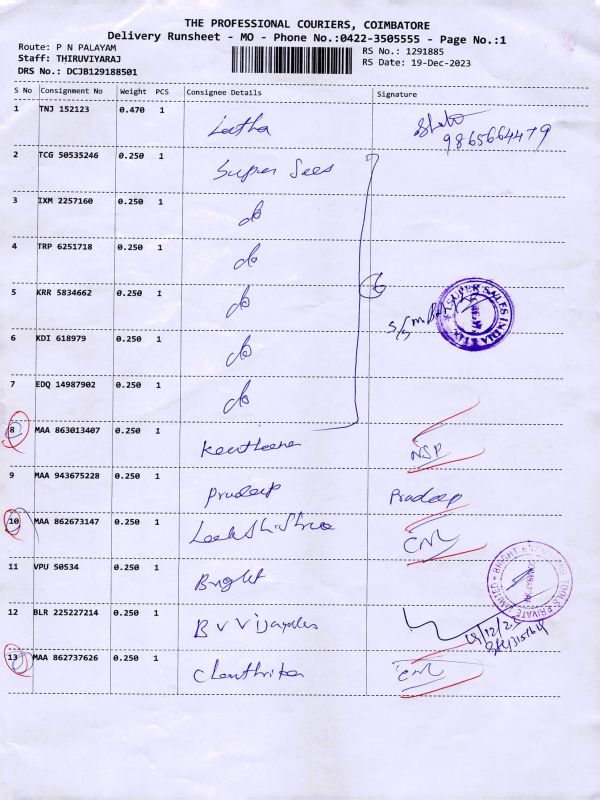 THE PROFESSIONAL COURIERS, COIMBATORE
Delivery Runsheet - MO - Phone No.:0422-3505555 - Page No.:1
Route: P N PALAYAM
Staff: THIRUVIYARAJ
DRS No.: DCJB129188501
RS No.: 1291885
RS Date: 19-Dec-2023
S No Consignment No Weight PCS Consignee Details Signature
1 TNJ 152123 0.470 1 Latha
9865664479
2 TCG 50535246 0.250 1 Super Sees
3 IXM 2257160 0.250 1 do
4 TRP 6251718 0.250 1 do
5 KRR 5834662 0.250 1 do
6 KDI 618979 0.250 1 do
7 EDQ 14987902 0.250 1 do
6
SUPER SALES INDIA
8 MAA 863013407 0.250 1 Keerthana NSP
9 MAA 943675228 0.250 1 Pradeep Pradeep
10 MAA 862673147 0.250 1 CNL
11 VPU 50534 0.250 1 Bright
12 BLR 225227214 0.250 1 B V Vijayales
13 MAA 862737626 0.250 1 CNL